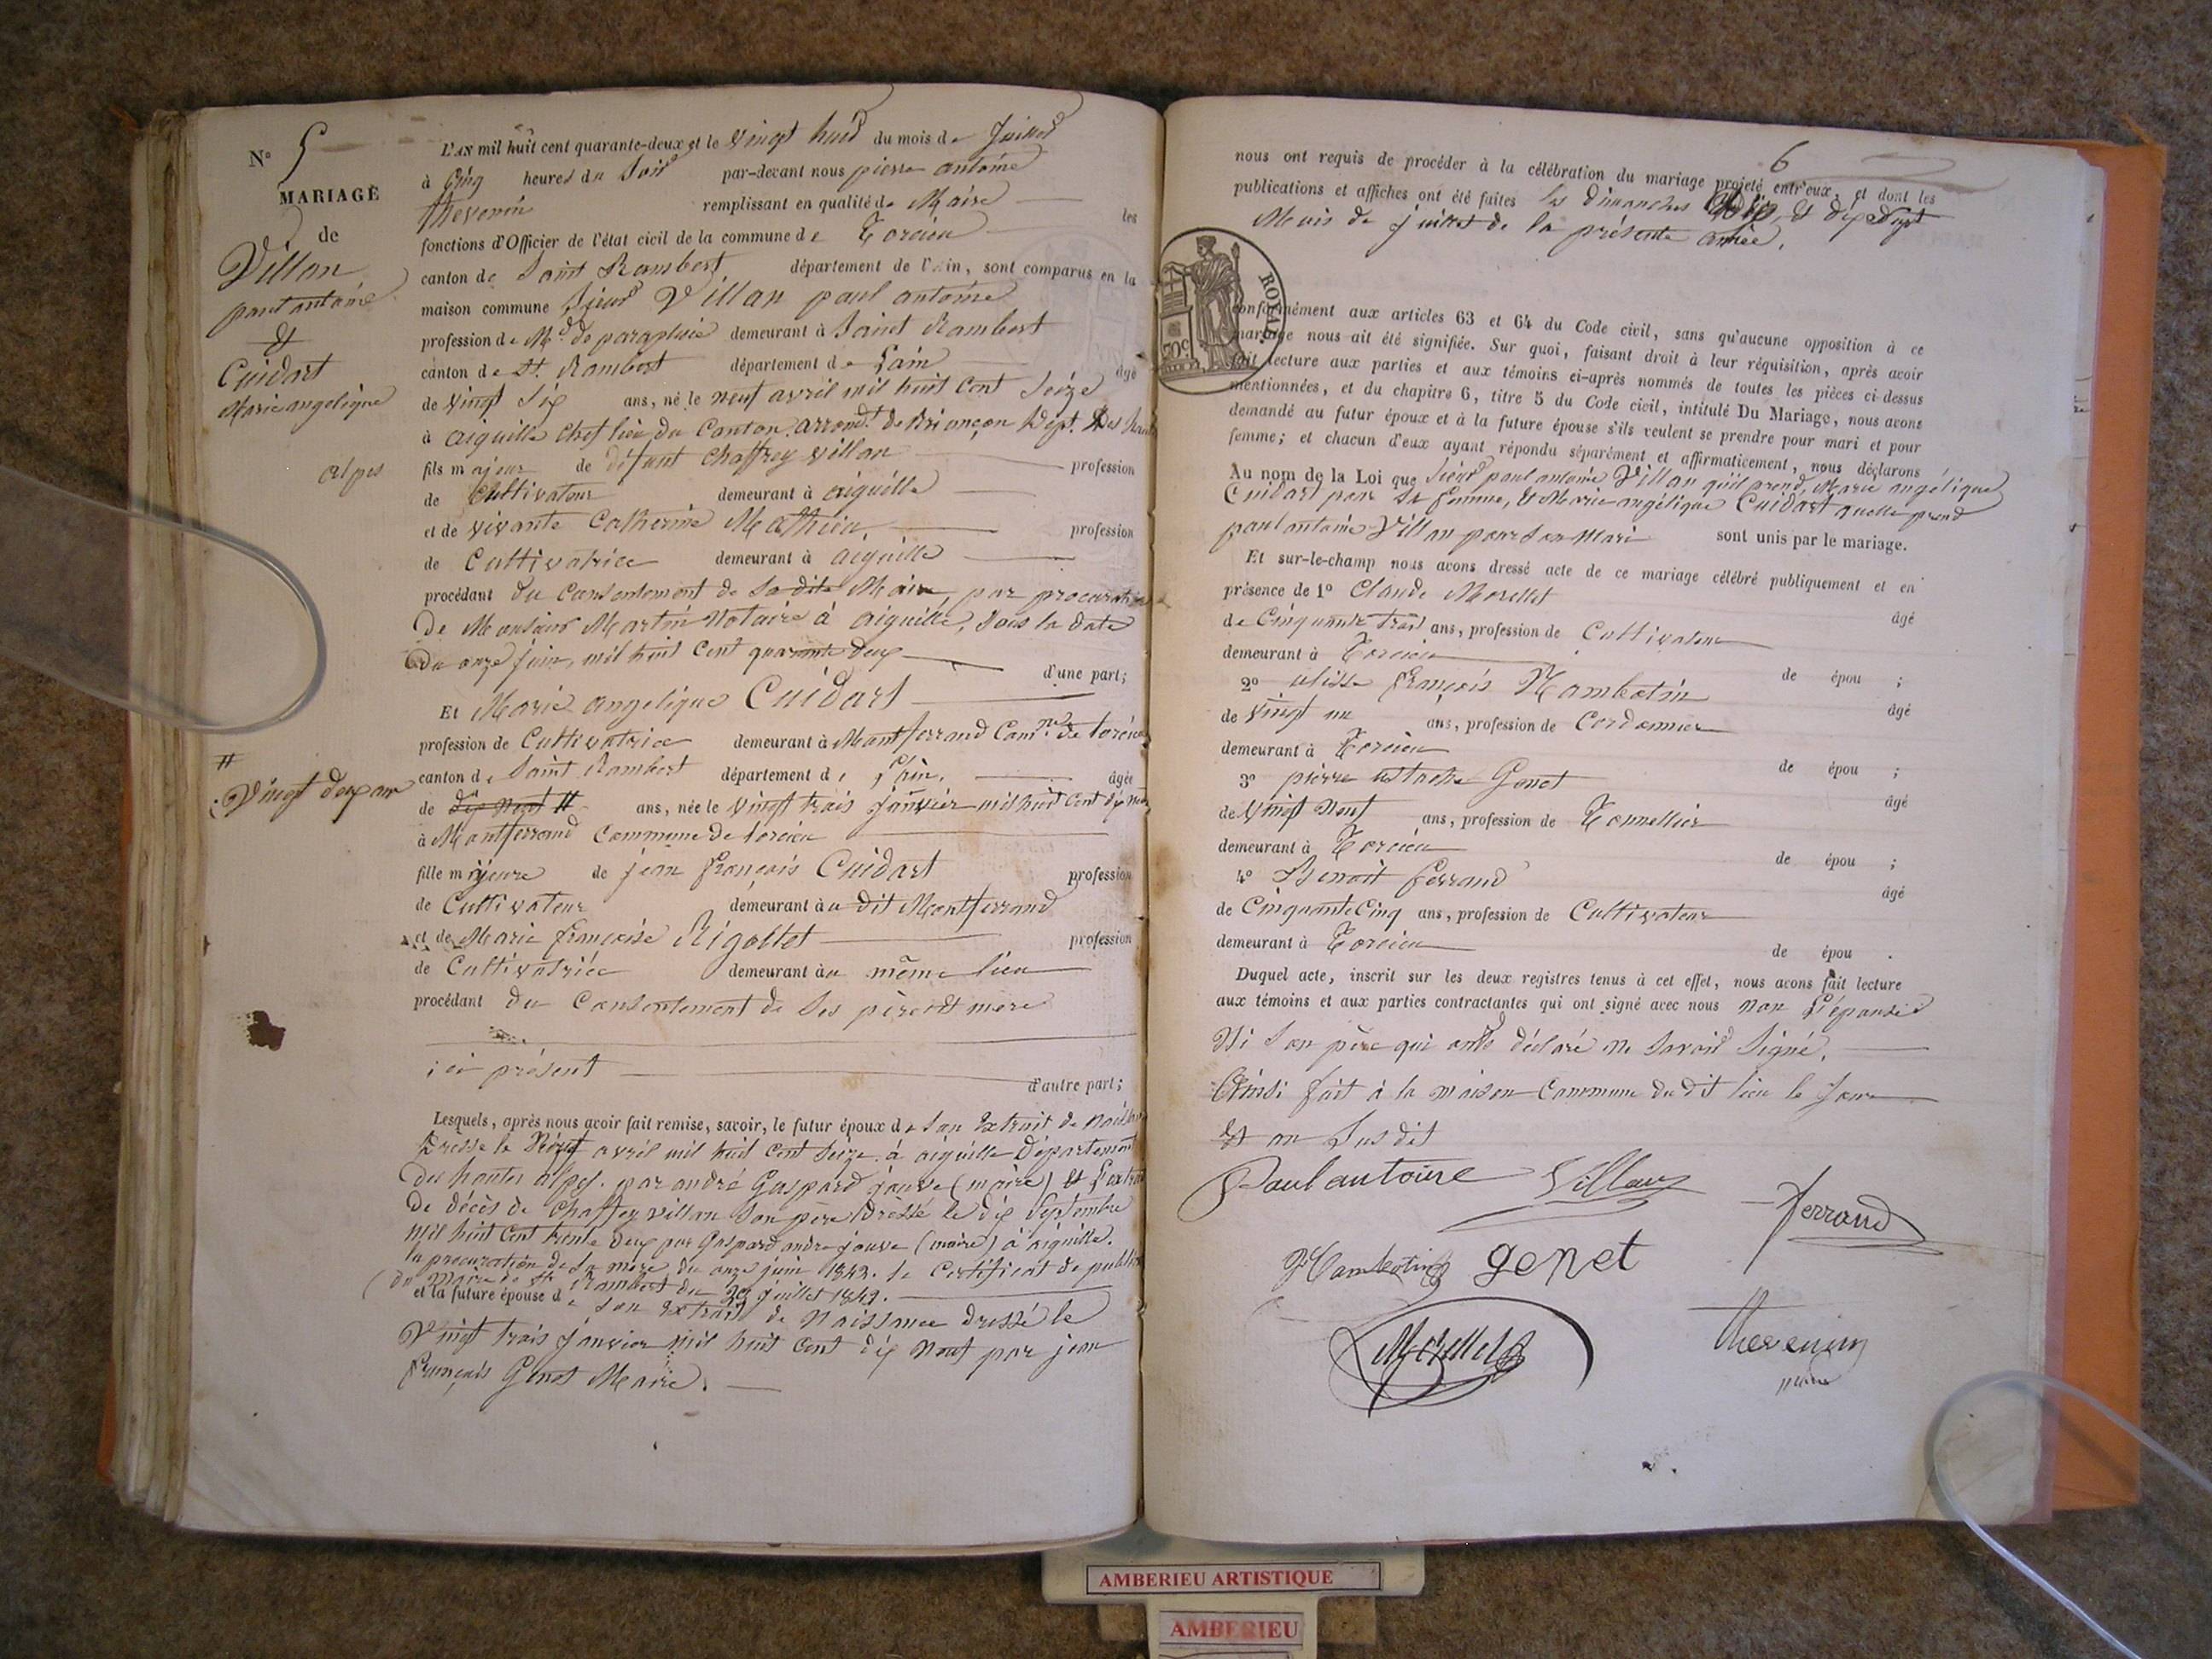 N° 5
MARIAGE
de
Villan
paul antoine
et
Cuidart
Marie angelique
L'AN mil huit cent quarante-deux et le vingt huit du mois de Juillet
à Cinq heures du Soir par-devant nous pierre antoine
thevenin remplissant en qualité de Maire les
fonctions d'Officier de l'état civil de la commune de Torcieu
canton de Saint Rambert, département de l'Ain, sont comparus en la
maison commune Sieur Villan paul antoine
profession de Md. de parapluie demeurant à Saint Rambert
canton de St. Rambert département de Lain âgé
de vingt Six ans, né le neuf avril mil huit Cent Seize
à aiguille Chef lieu du Canton. arrondt. de Briançon Dept. des hautes
alpes
fils majeur de défunt Chaffrey villan profession
de Cultivateur demeurant à aiguille
et de vivante Catherine Mathieu, profession
de Cultivatrice demeurant à aiguille
procédant du Consentement de Sa dite Mère, par procuration
De Monsieur Martin Notaire à aiguille, Sous la date
Du onze juin, mil huit Cent quarante deux d'une part;
Et Marie angelique Cuidart
profession de Cultivatrice demeurant à Montferrand Comne. de torcieu
canton de Saint Rambert département de l'ain. âgée
de dix neuf # ans, née le vingt trois janvier mil huit Cent dix neuf
#
Vingt deux ans
à Montferrand Commune de torcieu
fille majeure de jean françois Cuidart profession
de Cultivateur demeurant au dit Montferrand
et de Marie françoise Rigollet profession
de Cultivatrice demeurant au même lieu
procédant du Consentement de Ses père et mère
ici présent d'autre part;
Lesquels, après nous avoir fait remise, savoir, le futur époux de Son Extrait de naissance
Dressé le avril mil huit Cent Seize à aiguille Département
Des hautes alpes. par andré Gaspard jauve (maire) et l'extrait
De décès de Chaffrey villan Son père Dressé le dix Septembre
mil huit Cent trente deux par Gaspard andre jouve (maire) à aiguille.
la procuration de Sa mère du onze juin 1842. le Certificat de publication
(du Maire de St. Rambert du juillet 1842.
et la future épouse de Son Extrait de Naissance dressé le
Vingt trois janvier mil huit Cent dix Neuf par jean
françois Genet Maire.
6
nous ont requis de procéder à la célébration du mariage projeté entr'eux, et dont les
publications et affiches ont été faites les dimanches dix et dix Sept
Mois de juillet de la présente année.
ROYAL
70c
conformément aux articles 63 et 64 du Code civil, sans qu'aucune opposition à ce
mariage nous ait été signifiée. Sur quoi, faisant droit à leur réquisition, après avoir
fait lecture aux parties et aux témoins ci-après nommés de toutes les pièces ci-dessus
mentionnées, et du chapitre 6, titre 5 du Code civil, intitulé Du Mariage, nous avons
demandé au futur époux et à la future épouse s'ils veulent se prendre pour mari et pour
femme; et chacun d'eux ayant répondu séparément et affirmativement, nous déclarons
Au nom de la Loi que Sieur paul antoine Villan qu'il prend Marie angélique
Cuidart pour Sa femme, Et Marie angélique Cuidart quelle prend
paul antoine Villan pour Son Mari sont unis par le mariage.
Et sur-le-champ nous avons dressé acte de ce mariage célébré publiquement et en
présence de 1° Claude Morellet âgé
de Cinquante trois ans, profession de Cultivateur
demeurant à Torcieu de épou ;
2° ulisse françois Hambotin âgé
de vingt un ans, profession de Cordonnier
demeurant à Torcieu de épou ;
3° pierre ustache Genet âgé
de vingt Neuf ans, profession de Tonnellier
demeurant à Torcieu de épou ;
4° Benoit ferrand âgé
de Cinquante Cinq ans, profession de Cultivateur
demeurant à Torcieu de épou .
Duquel acte, inscrit sur les deux registres tenus à cet effet, nous avons fait lecture
aux témoins et aux parties contractantes qui ont signé avec nous non L'épouse
Ni Son père qui ont déclaré ne Savoir Signé.
Ainsi fait à la maison Commune du dit lieu le Jour
Et an Susdit
Paul antoine Villan
ferrand
Hambotin genet
Morellet
thevenin
maire
AMBERIEU ARTISTIQUE
AMBERIEU